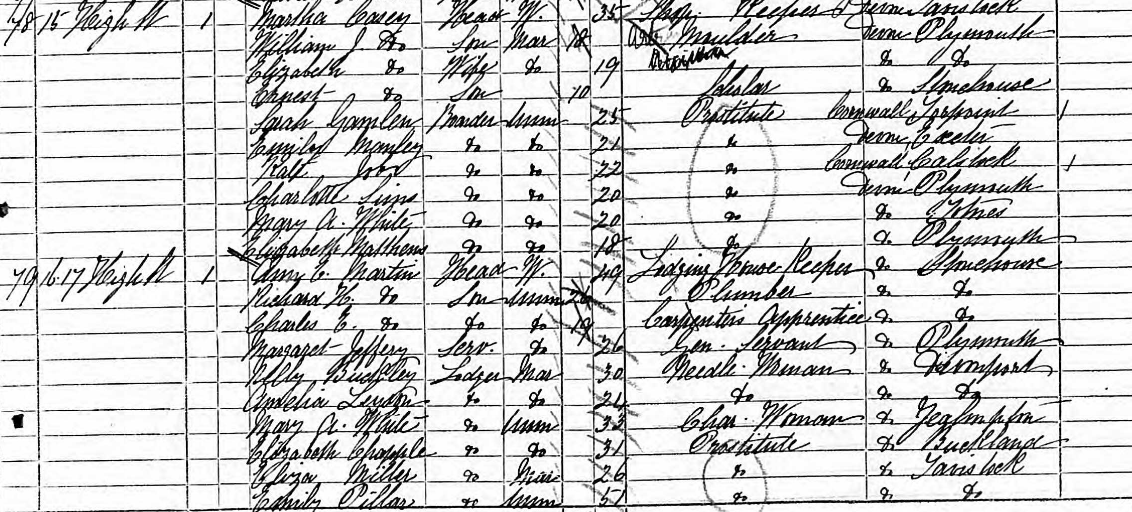 78 15 High St 1 Martha Casey Head W. 35 Shop Keeper Devon Tavistock
William J. do Son Mar 18 Moulder Devon Plymouth
Elizabeth do Wife do 19 do do
Ernest do Son 10 Scholar do Stonehouse
Sarah Gamlen Boarder Unm 25 Prostitute Cornwall Torpoint 1
Emily Manley do do 21 do Devon Exeter
Kate do do 22 do Cornwall Calstock 1
Charlotte Sims do do 20 do Devon Plymouth
Mary A. White do do 20 do do Totnes
Elizabeth Matthews do do 18 do do Plymouth
79 16-17 High St 1 Amy E. Martin Head W. 49 Lodging House Keeper do Stonehouse
Richard H. do Son Unm Plumber do do
Charles E. do do do 19 Carpenters Apprentice do do
Margaret Jeffery Serv. do 26 Gen. Servant do Plymouth
Lodger Mar 30 Needle Woman do Devonport
Amelia do do 24 do do do
Mary A. White do Unm 33 Char Woman do Yealmpton
Elizabeth Chapple do do 31 Prostitute do Buckland
Eliza Miller do Mar 26 do do Tavistock
Emily Pillar do Unm 51 do do do